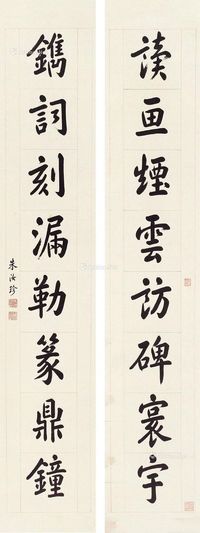 读画煙雲訪碑寰宇
鐫詞刻漏勒篆鼎鐘
朱汝珍